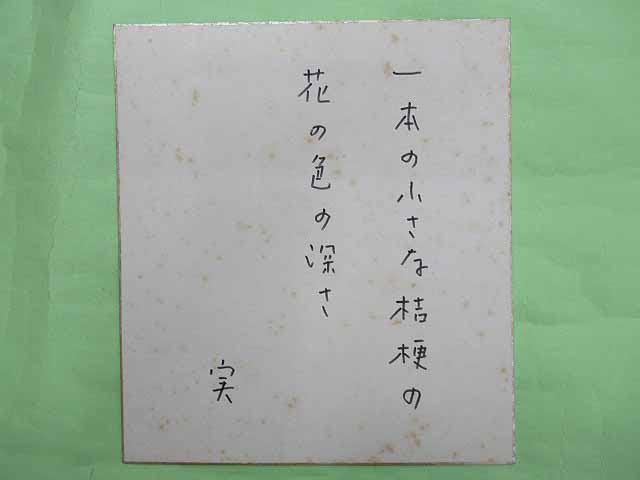 一本の小さな桔梗の
花の色の深さ
実